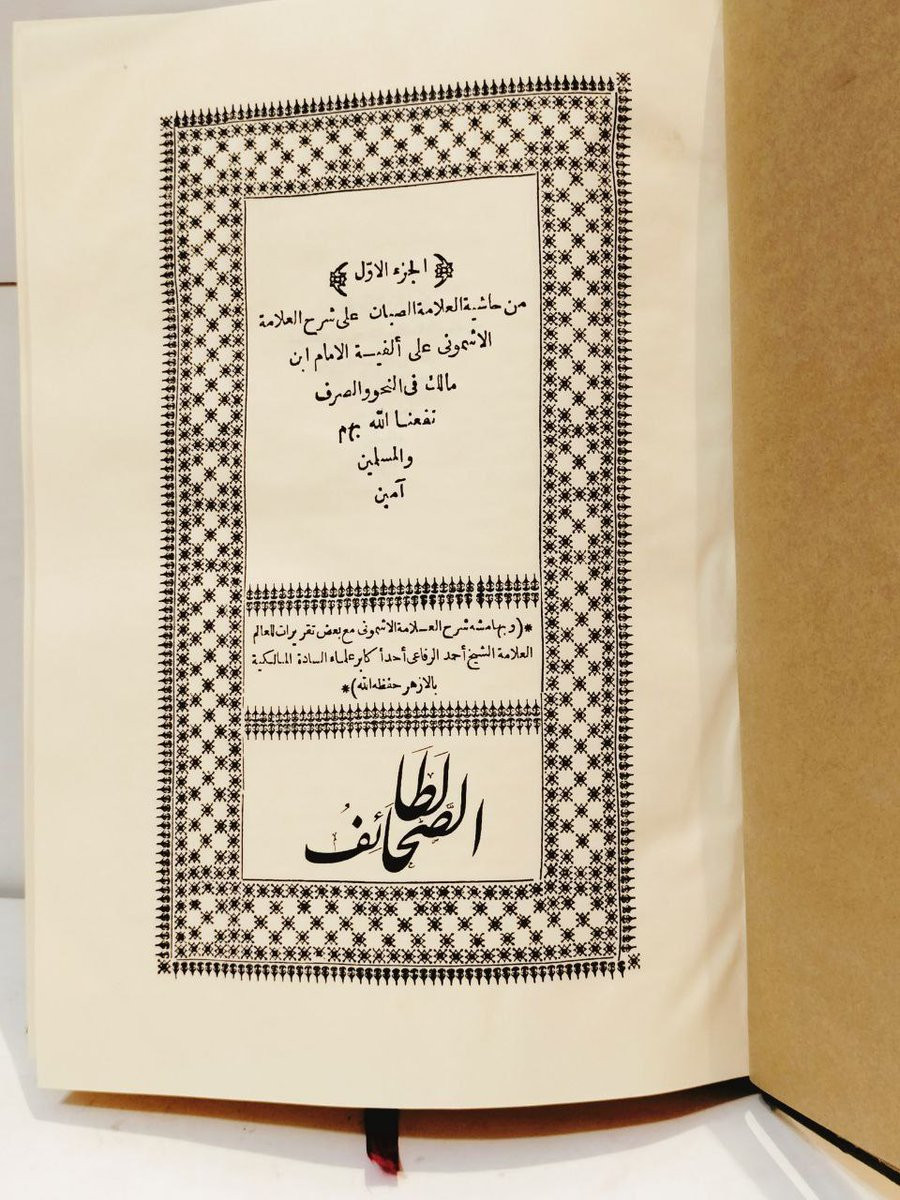 ﴿الجزء الاوّل﴾
من حاشية العلامة الصبان على شرح العلامة
الاشمونى على ألفيسة الامام ابن
مالك فى النحو والصرف
نفعنا الله بهم
والمسلمين
آمين
*(وبهامشه شرح العلامة الاشمونى مع بعض تقريرات للعالم
العلامة الشيخ أحمد الرفاعى أحد أكابر علماء السادة المالكية
بالازهر حفظه الله)*
لَطَائِفُ
الصَّحَائِفُ